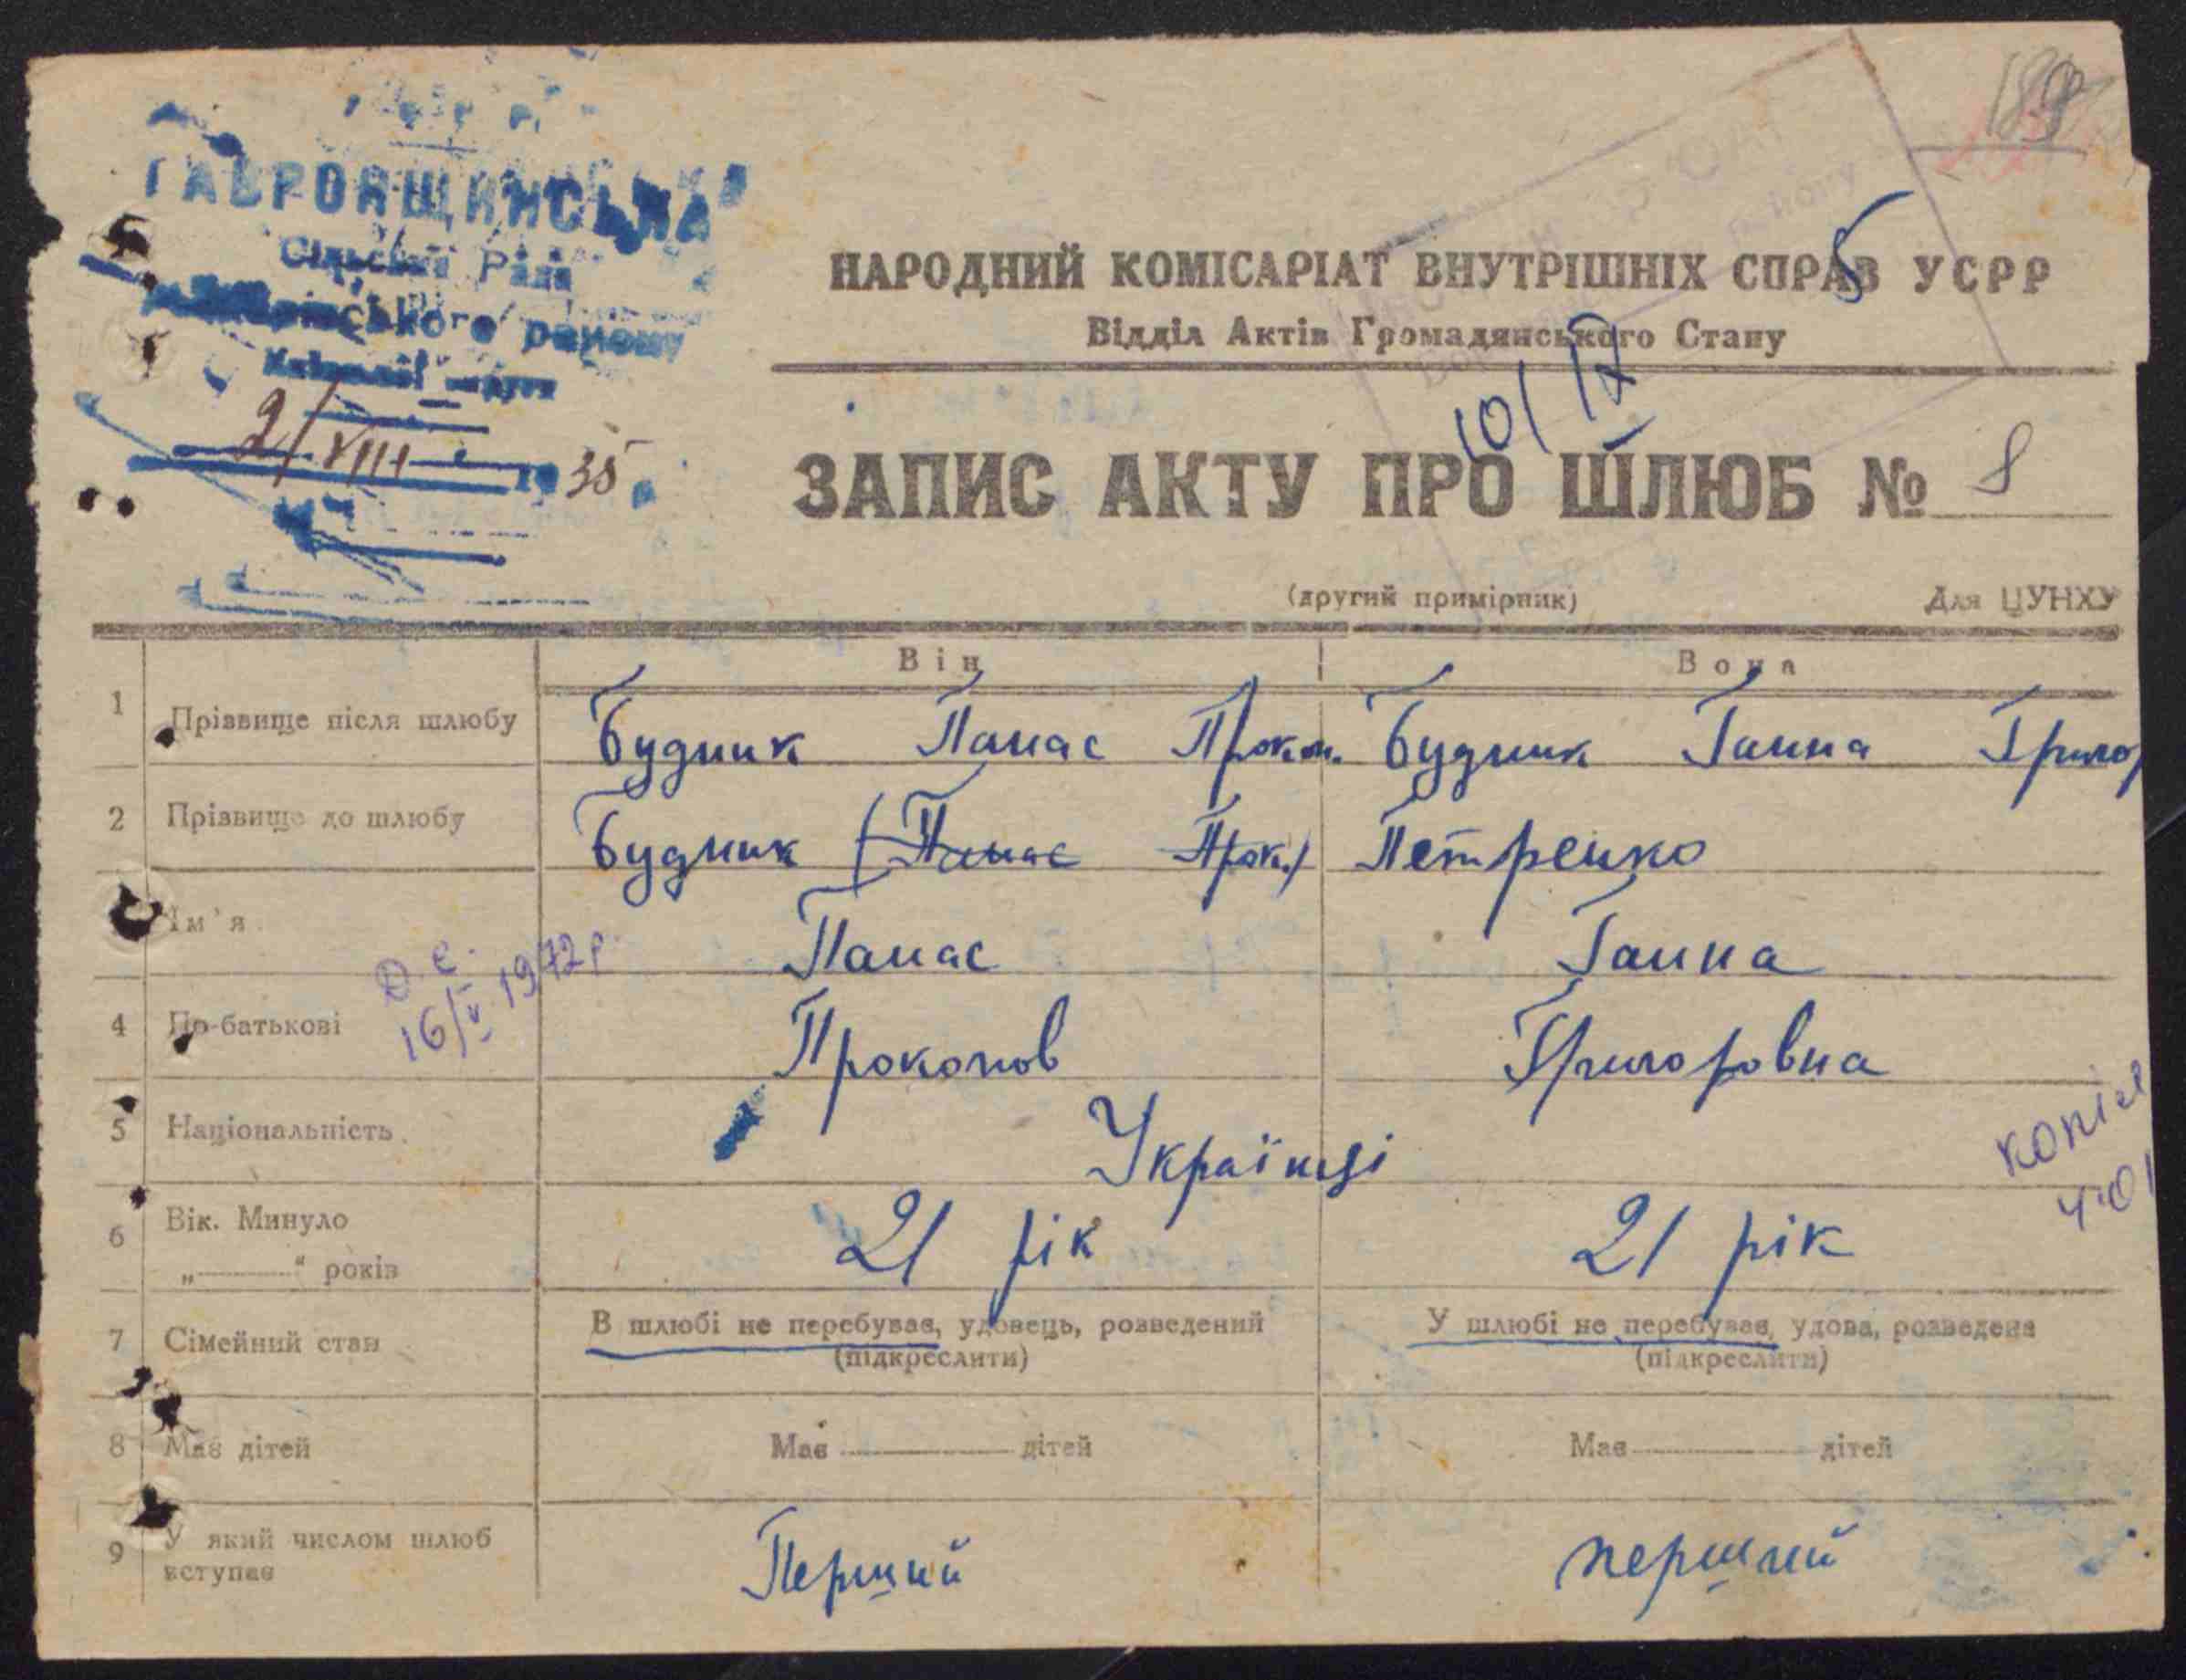 189
ГАВРОНЩИНСЬКА
Сільська Рада
району
2/VIII 1935
НАРОДНИЙ КОМІСАРІАТ ВНУТРІШНІХ СПРАВ УСРР
Відділ Актів Громадянського Стану
10/IV
ЗАПИС АКТУ ПРО ШЛЮБ № 8
(другий примірник) Для ЦУНХУ
Він Вона
1 Прізвище після шлюбу Будник Панас Прокоп. Будник Ганна Григор
2 Прізвище до шлюбу Будник (Панас Прок.) Петренко
Ім'я Панас Ганна
4 По-батькові Прокопов Григоровна
16/V 1972 р.
5 Національність Українці
копія
6 Вік. Минуло „——“ років 21 рік 21 рік
7 Сімейний стан В шлюбі не перебував, удовець, розведений (підкреслити) У шлюбі не перебуває, удова, розведена (підкреслити)
8 Має дітей Має —— дітей Має —— дітей
9 У який числом шлюб вступає Перший перший